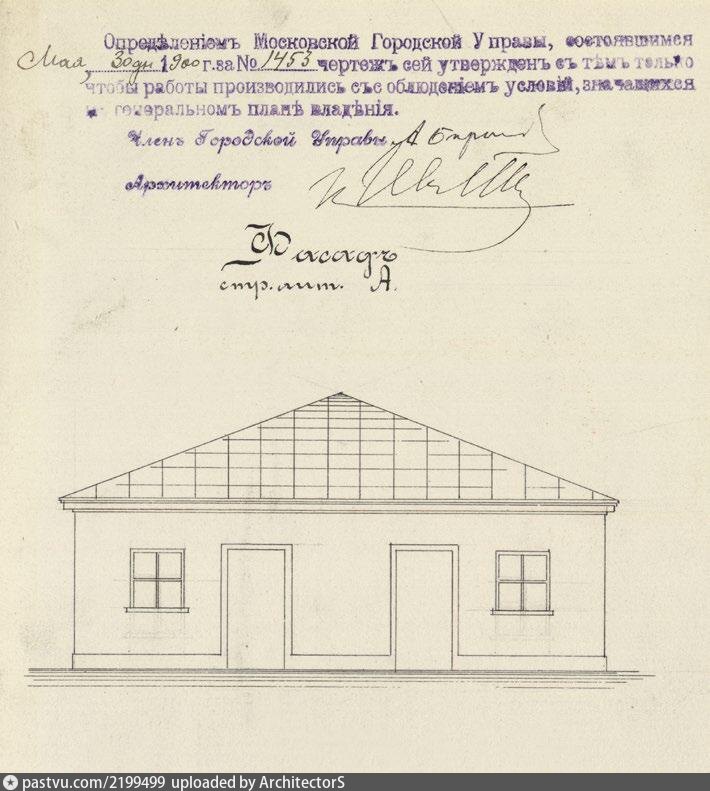 Опредѣленіемъ Московской Городской Управы, состоявшимся
Мая, 30 дн 1900 г. за № 1453 чертежъ сей утвержденъ съ тѣмъ только
чтобы работы производились съ соблюденіемъ условій, значащихся
генеральномъ планѣ владѣнія.
Членъ Городской Управы
Архитекторъ
Фасадъ
стр. лит. А.
pastvu.com/2199499 uploaded by ArchitectorS